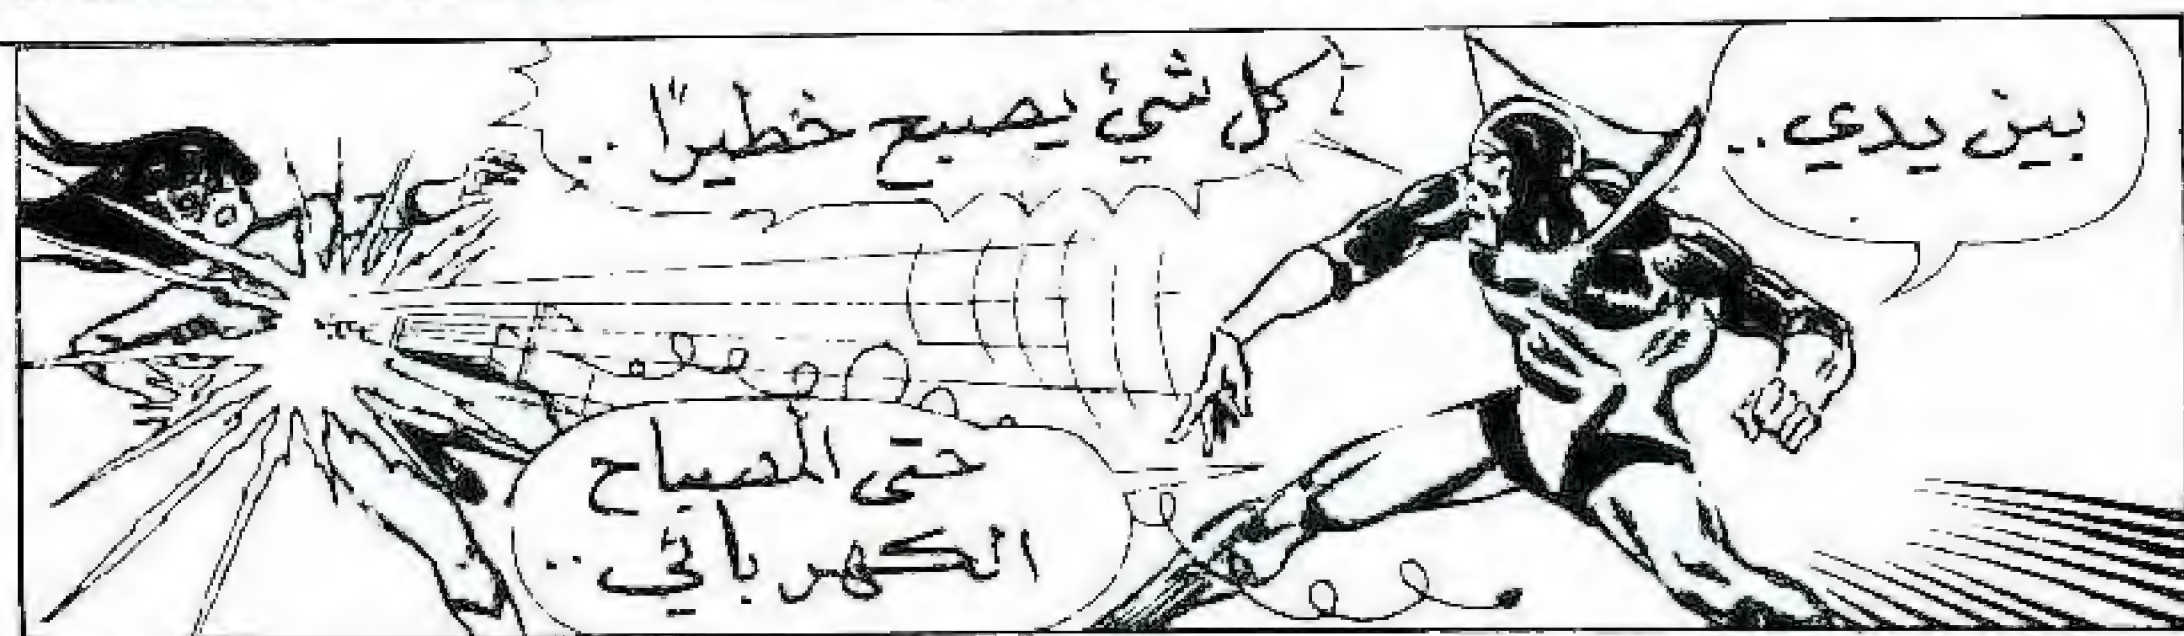 بين يدي ..
كل شئ يصبح خطيرًا ..
حتى المصباح
الكهربائي ..